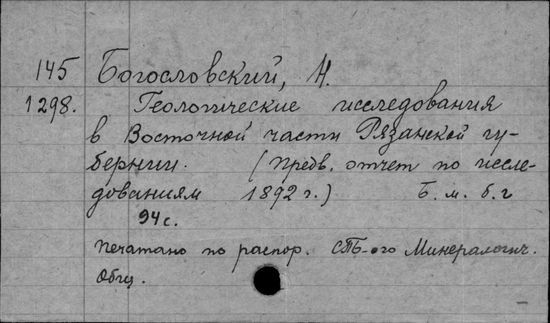 145 Богословский, Н.
1298. Геологические исследования
в Восточной части Рязанской гу-
бернии. (Предв. отчет по иссле-
дованиям 1892 г.) Б. м. б. г
94 с.
печатано по распор. СПБ-ого Минералогич.
Общ.